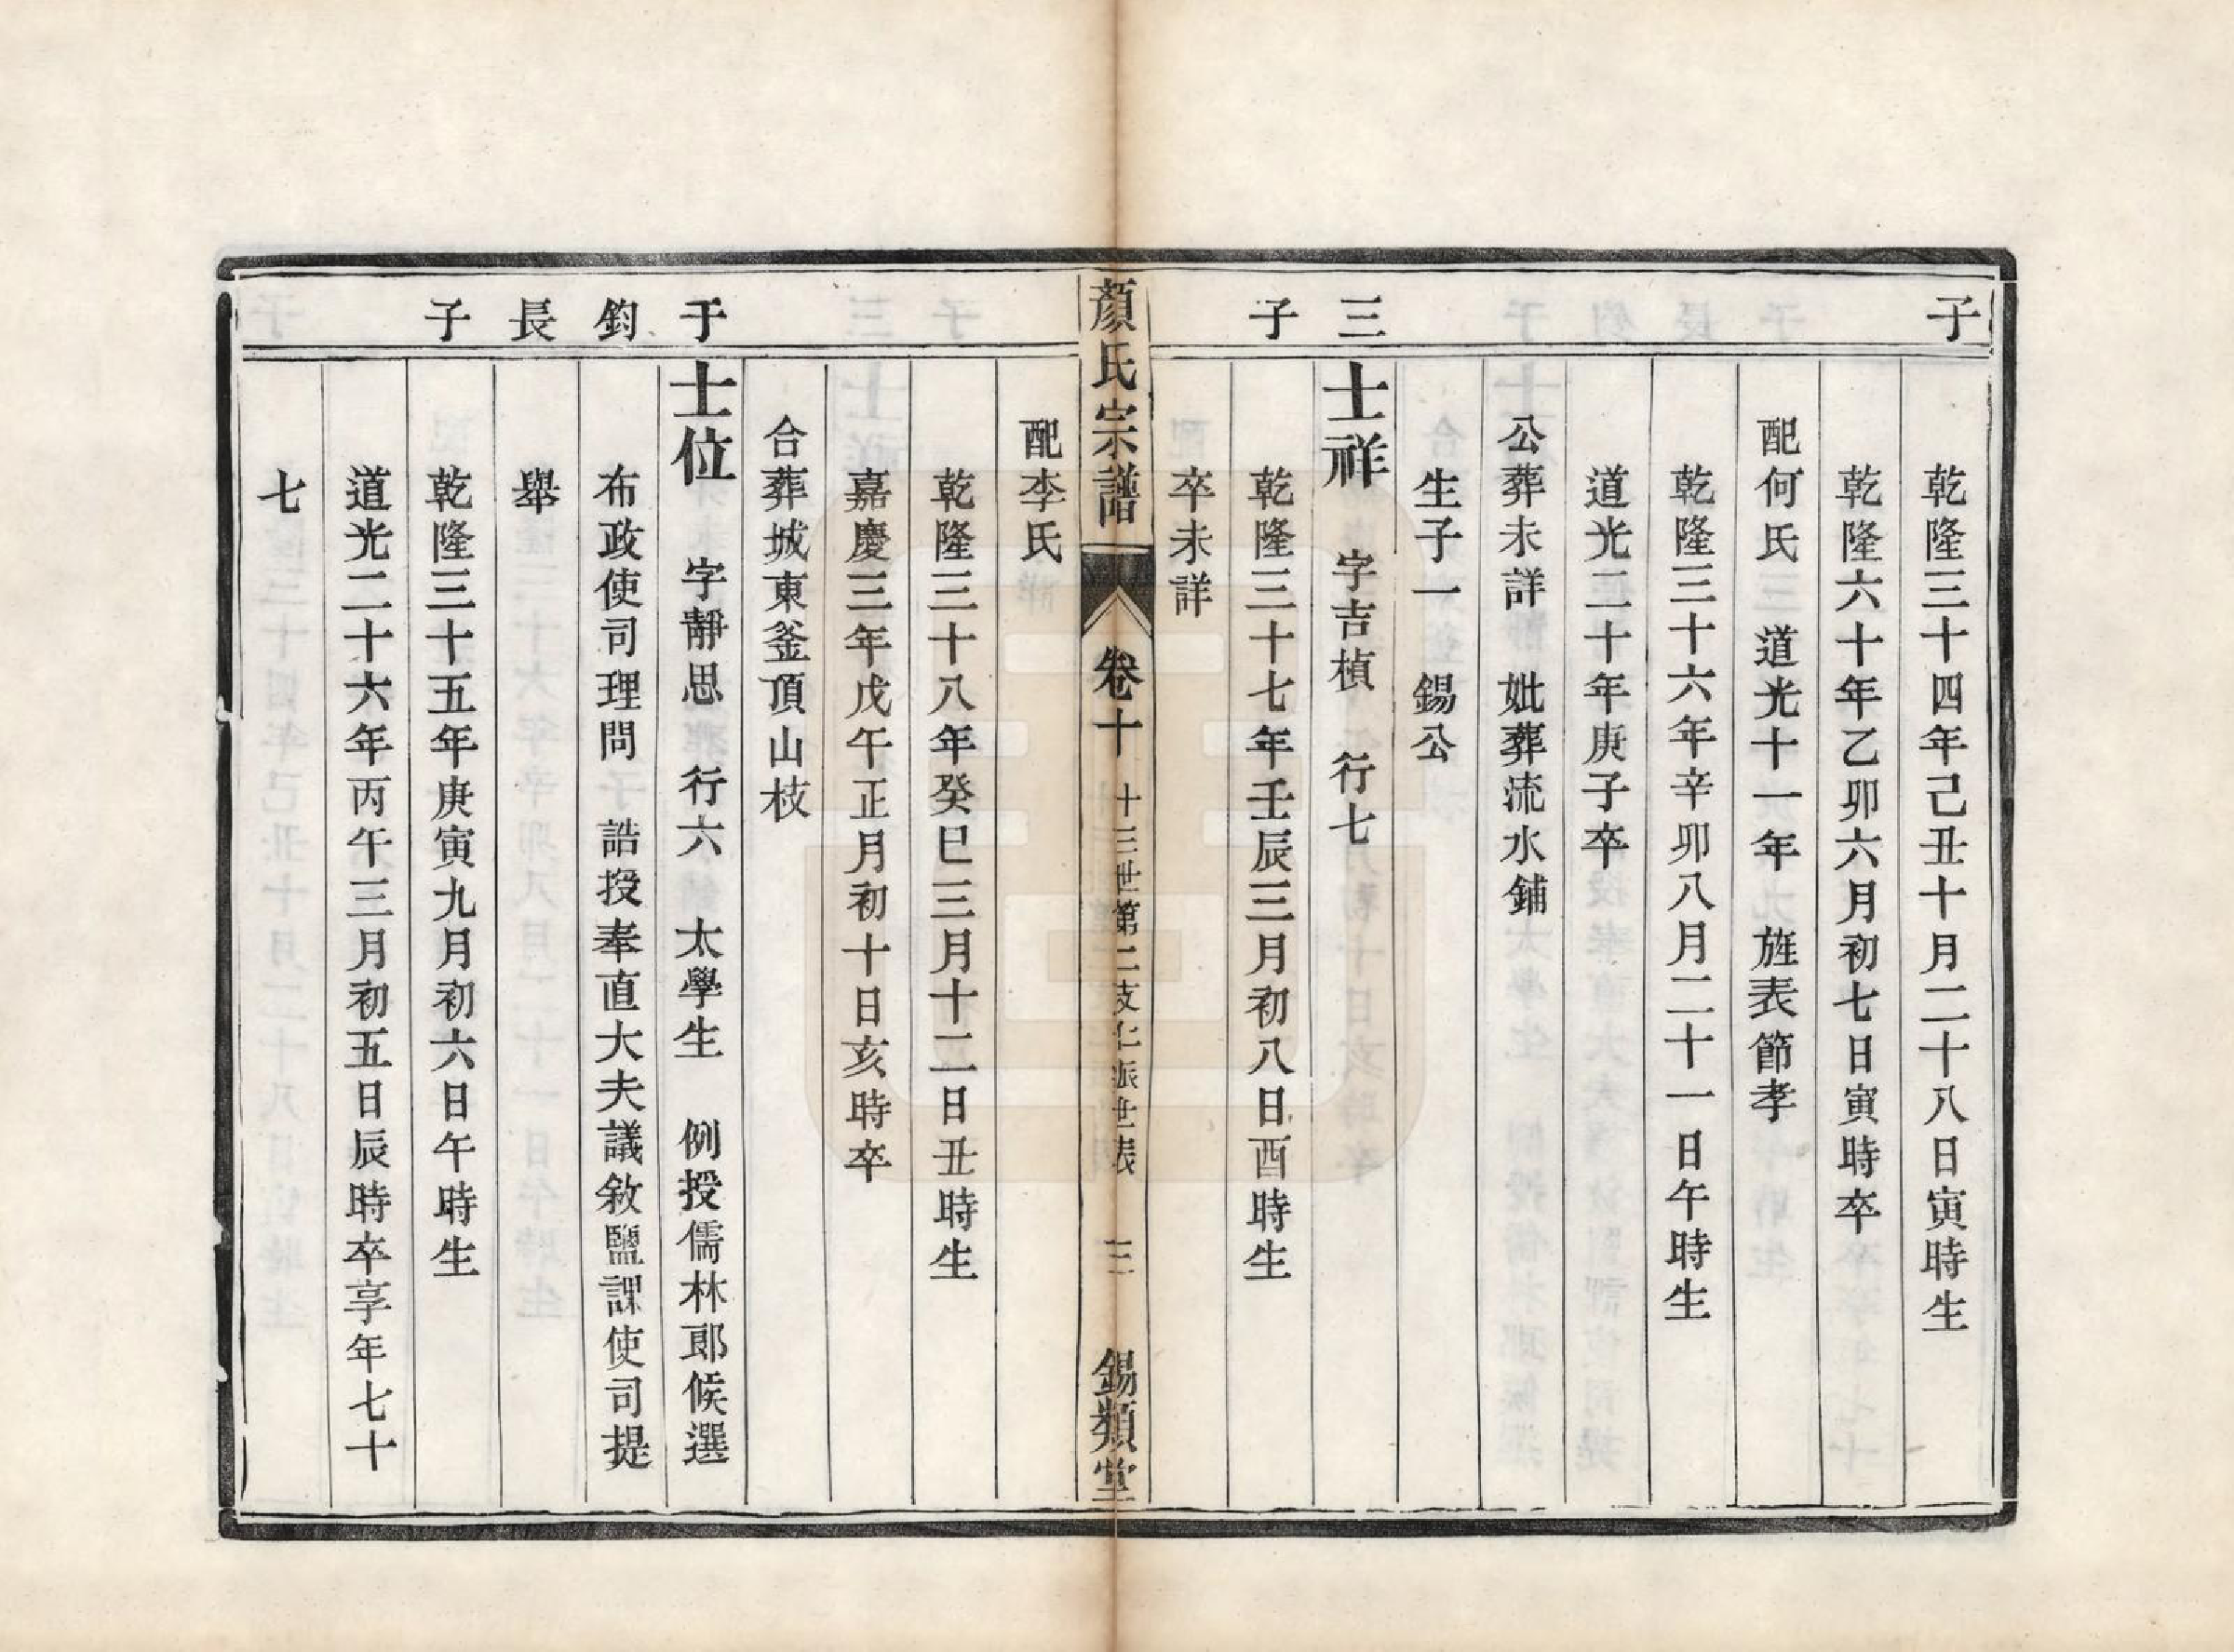 子
乾隆三十四年己丑十月二十八日寅時生
乾隆六十年乙卯六月初七日寅時卒
配何氏 道光十一年 旌表節孝
乾隆三十六年辛卯八月二十一日午時生
道光二十年庚子卒
公葬未詳 妣葬流水鋪
生子一 錫公
三子
士祥 字吉楨 行七
乾隆三十七年壬辰三月初八日酉時生
卒未詳
顏氏宗譜 卷十 十三世第二支仁派世表 三 錫類堂
配李氏
乾隆三十八年癸巳三月十二日丑時生
嘉慶三年戊午正月初十日亥時卒
合葬城東釜頂山枝
于鈞長子
士位 字靜思 行六 太學生 例授儒林郎候選
布政使司理問 誥授奉直大夫議敘鹽課使司提
舉
乾隆三十五年庚寅九月初六日午時生
道光二十六年丙午三月初五日辰時卒享年七十
七